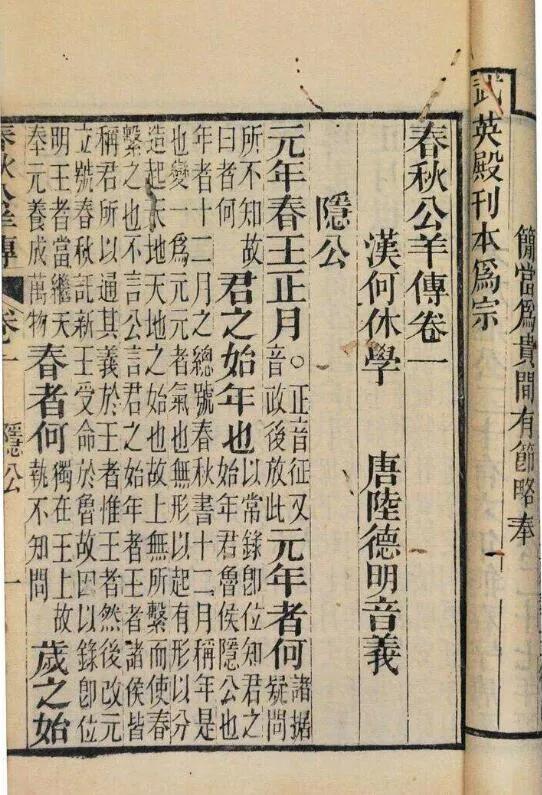 簡當爲貴間有節略奉
武英殿刊本爲宗
春秋公羊傳卷一
漢何休學 唐陸德明音義
隱公
元年春王正月。正音征又音政後放此元年者何諸據疑問
所不知故曰者何君之始年也以常錄卽位知君之始年君魯侯隱公也
年者十二月之總號春秋書十二月稱年是
也變一爲元元者氣也無形以起有形以分
造起天地天地之始也故上無所繫而使春
繫之也不言公言君之始年者王者諸侯皆
稱君所以通其義於王者惟王者然後改元
立號春秋託新王受命於魯故因以錄卽位
明王者當繼天奉元養成萬物春者何獨在王上故執不知問歲之始
春秋公羊傳 卷一 隱公 一